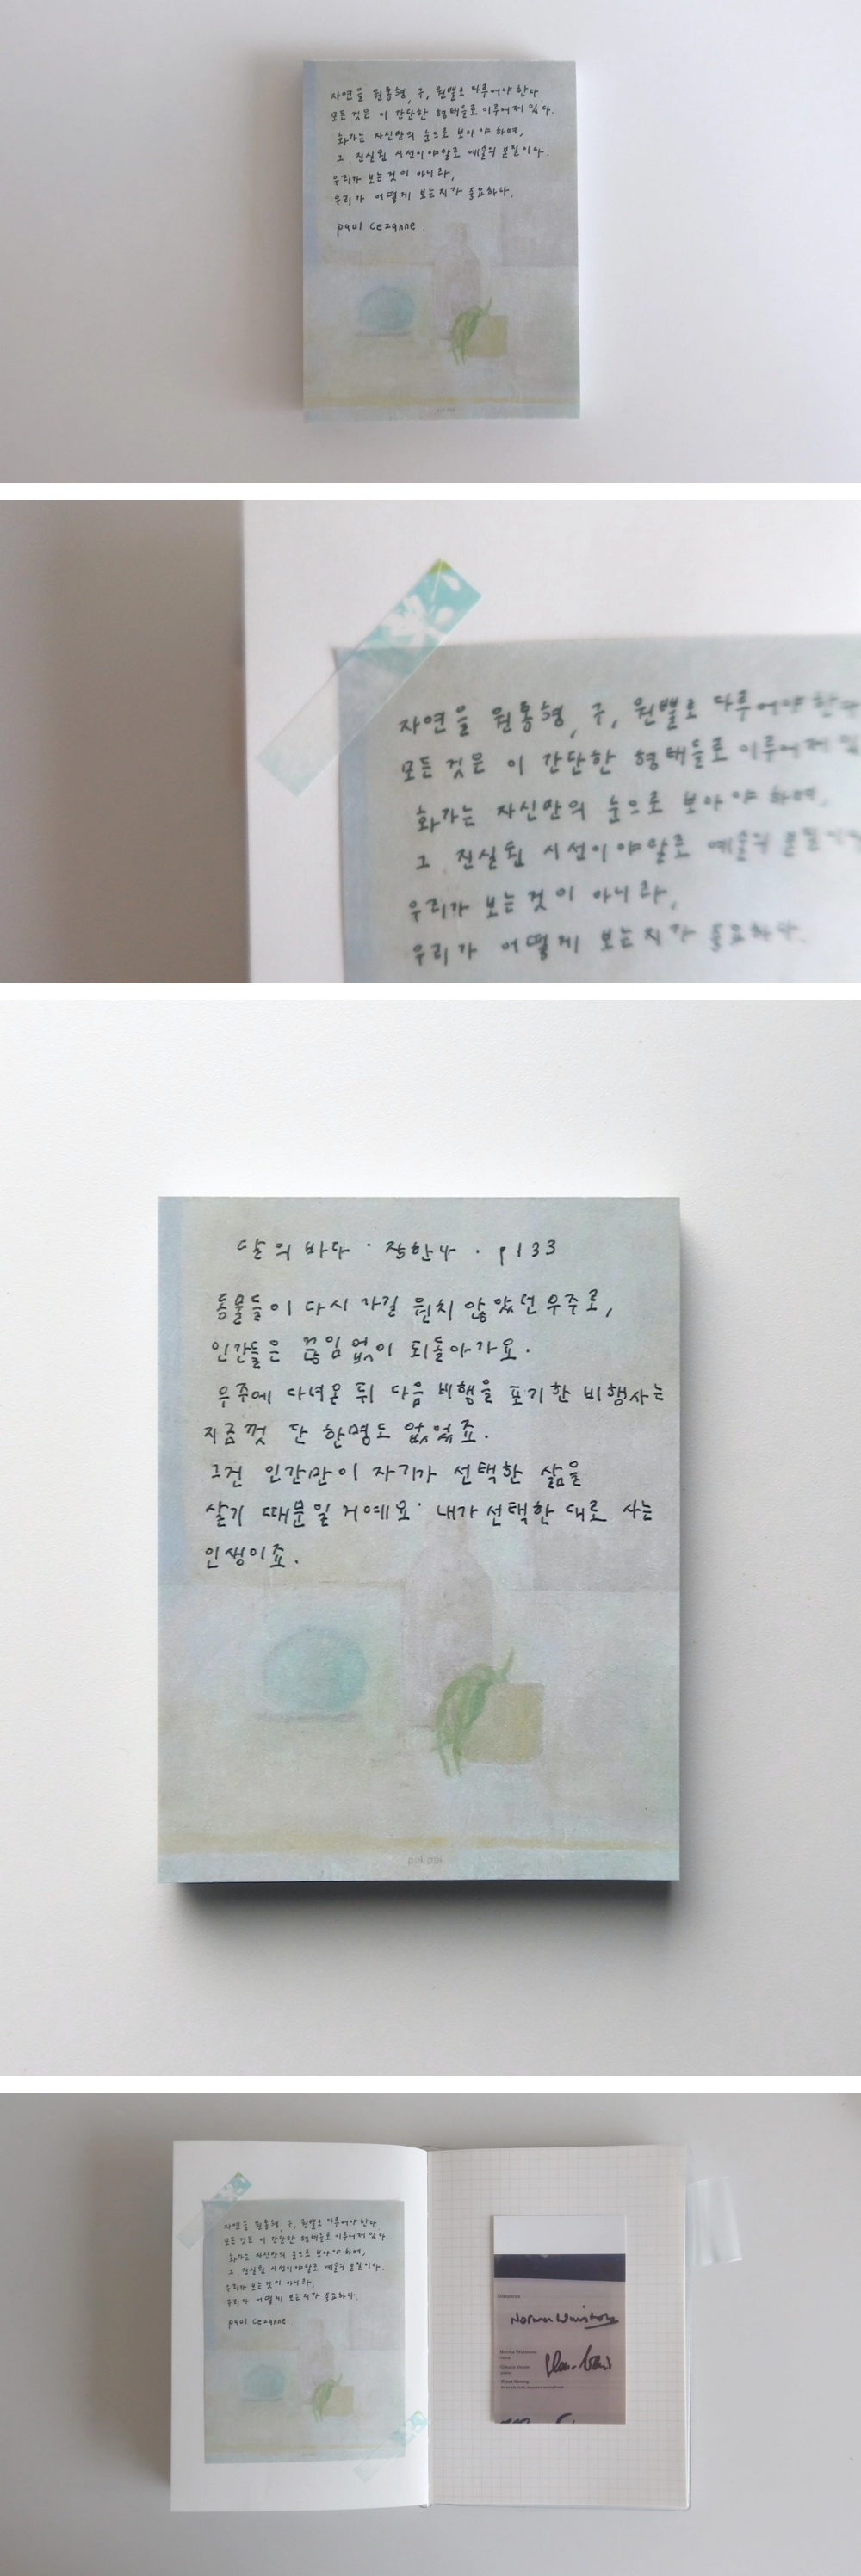 자연을 원통형, 구, 원뿔로 다루어야 한다.
모든 것은 이 간단한 형태들로 이루어져 있다.
화가는 자신만의 눈으로 보아야 하며,
그 진실된 시선이야말로 예술의 본질이다.
우리가 보는 것이 아니라,
우리가 어떻게 보는지가 중요하다.
paul cezanne
자연을 원통형, 구, 원뿔로 다루어야 한다
모든 것은 이 간단한 형태들로 이루어져 있
화가는 자신만의 눈으로 보아야 하며,
그 진실된 시선이야말로 예술의 본질이다
우리가 보는 것이 아니라,
우리가 어떻게 보는지가 중요하다.
달의 바다 · 정한나 · p133
동물들이 다시 가길 원치 않았던 우주로,
인간들은 끊임없이 되돌아가요.
우주에 다녀온 뒤 다음 비행을 포기한 비행사는
지금껏 단 한명도 없었죠.
그건 인간만이 자기가 선택한 삶을
살기 때문일 거예요. 내가 선택한 대로 사는
인생이죠.
자연을 원통형, 구, 원뿔로 다루어야 한다
모든 것은 이 간단한 형태들로 이루어져 있다.
화가는 자신만의 눈으로 보아야 하며,
그 진실된 시선이야말로 예술의 본질이다.
우리가 보는 것이 아니라,
우리가 어떻게 보는지가 중요하다.
paul cezanne
Distances
Norma Winstone
Norma Winstone
Glauco Venier
Klaus Gesing